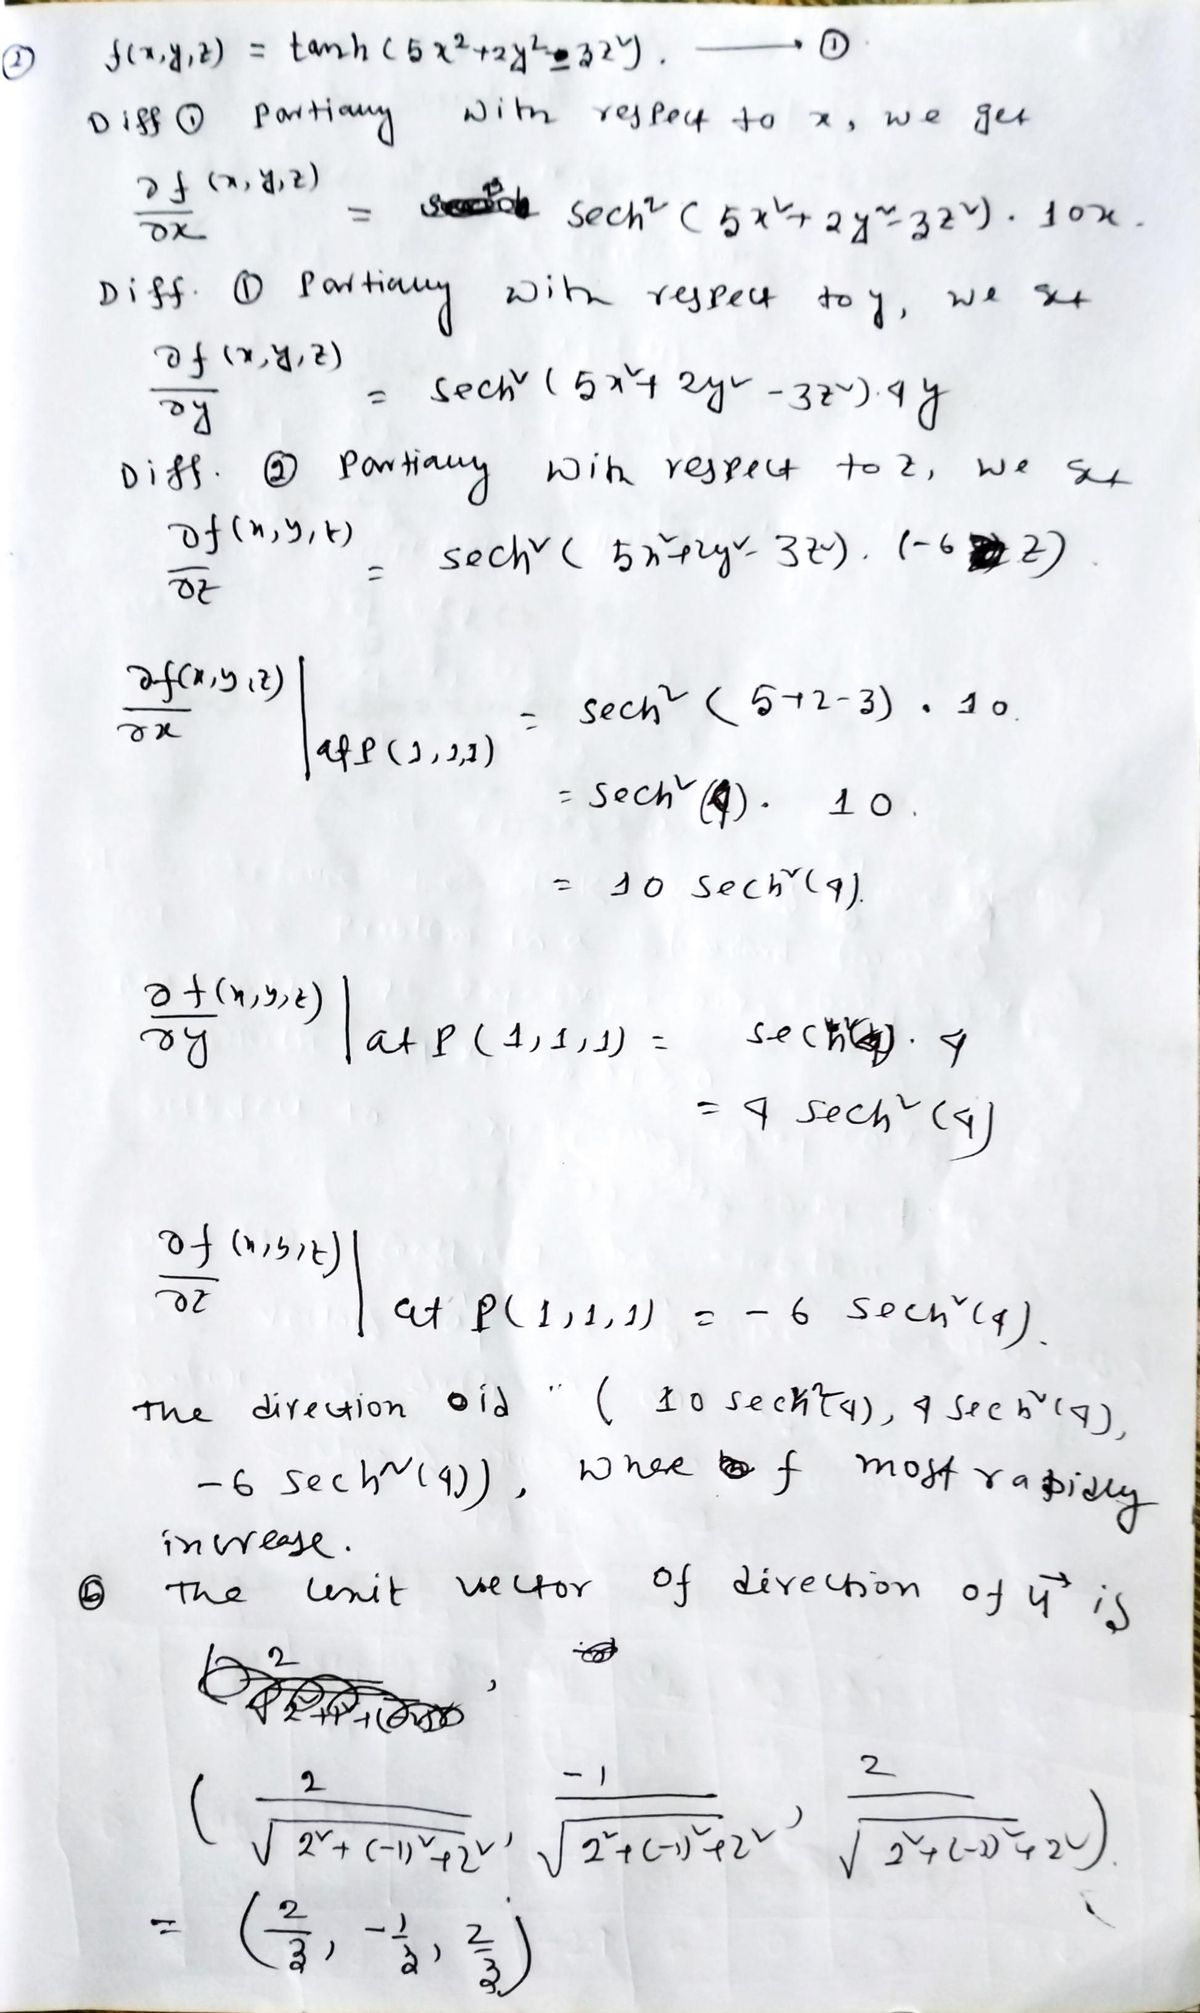 ② f(x,y,z) = tanh (5x²+2y²-3z²). ⟶ ①
Diff ① partially with respect to x, we get
∂f(x,y,z)/∂x = sech² (5x²+2y²-3z²). 10x.
Diff. ① Partially with respect to y, we get
∂f(x,y,z)/∂y = sech² (5x²+2y²-3z²).4y
Diff. ② Partially with respect to z, we get
∂f(x,y,z)/∂z = sech² (5x²+2y²-3z²). (-6z).
∂f(x,y,z)/∂x | at P(1,1,1) = sech² (5+2-3). 10.
= sech² (4). 10.
= 10 sech²(4).
∂f(x,y,z)/∂y | at P(1,1,1) = sech²(4). 4
= 4 sech² (4)
∂f(x,y,z)/∂z | at P(1,1,1) = -6 sech²(4).
The direction oid " ( 10 sech²(4), 4 sech²(4),
-6 sech²(4)), whee f most rapidly
increase.
ⓑ The unit vector of direction of u⃗ is
( 2/√(2²+(-1)²+2²), -1/√(2²+(-1)²+2²), 2/√(2²+(-1)²+2²) ).
= (2/3, -1/3, 2/3)